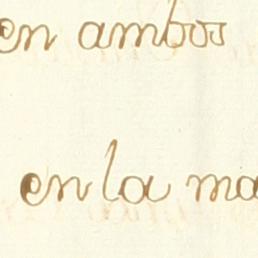 en ambos
en la ma